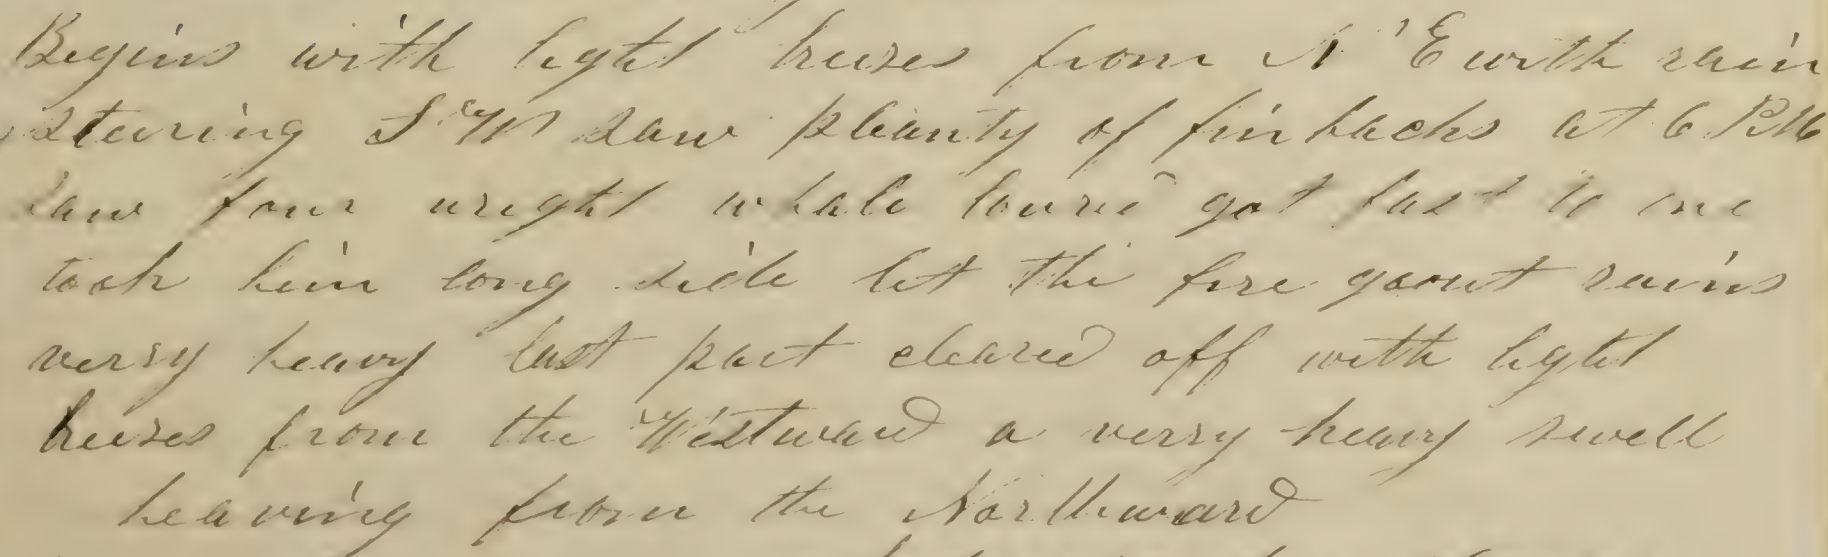 Begins with light breezes from N E with rain
steering S W saw pleanty of finbacks at 6 P.M
saw four wright whale lowred got fast to one
took him long side let the fire goout rains
verry heavy last part cleared off with light
breezes from the Westward a verry heavy swell
heaving from the Northward